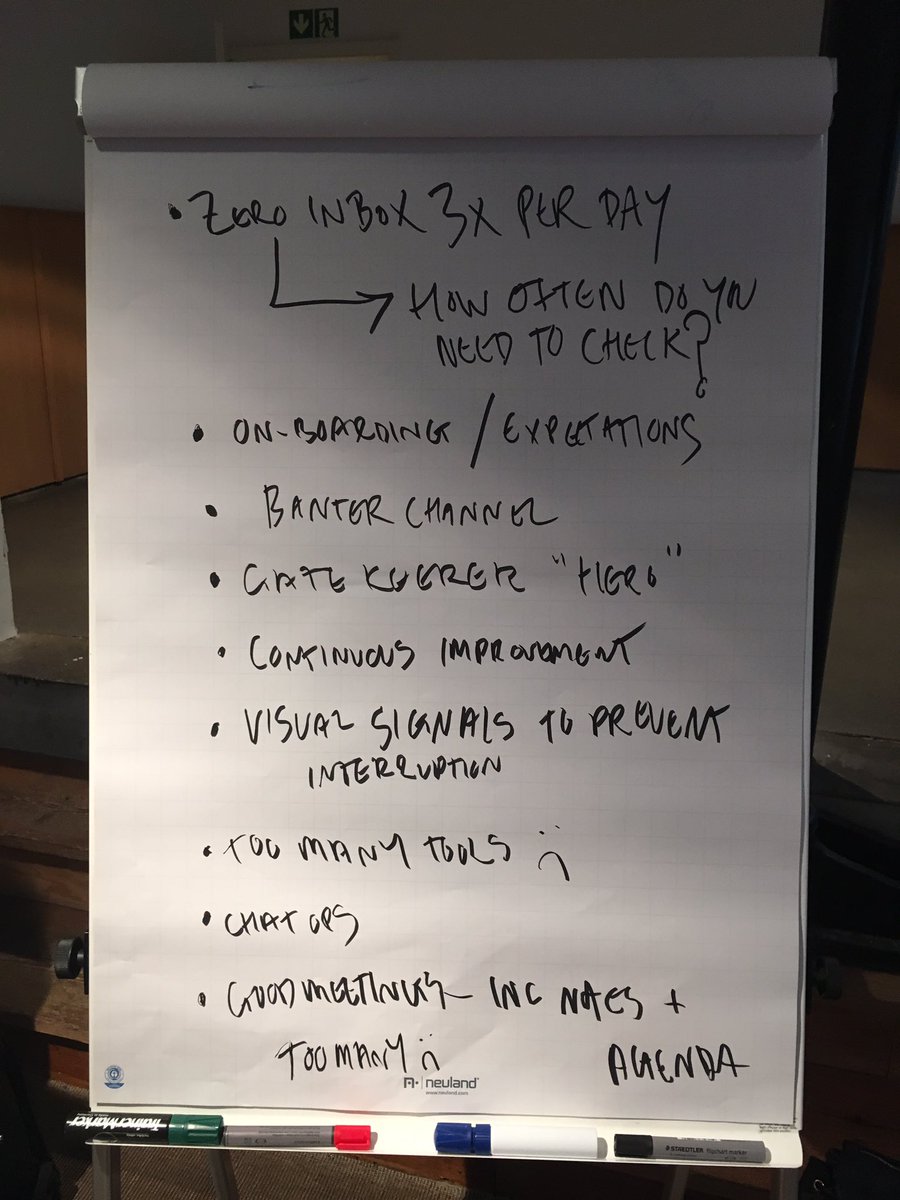 • ZERO INBOX 3X PER DAY
HOW OFTEN DO YOU
NEED TO CHECK?
• ON-BOARDING / EXPETATIONS
• BANTER CHANNEL
• GATE KEEPER "HERO"
• CONTINUOUS IMPROVEMENT
• VISUAL SIGNALS TO PREVENT
INTERRUPTION
• TOO MANY TOOLS :(
• CHAT OPS
• GOOD MEETINGS - INC NOTES +
TOO MANY :( AGENDA
neuland
www.neuland.com
TrainerMarker
STAEDTLER flipchart marker